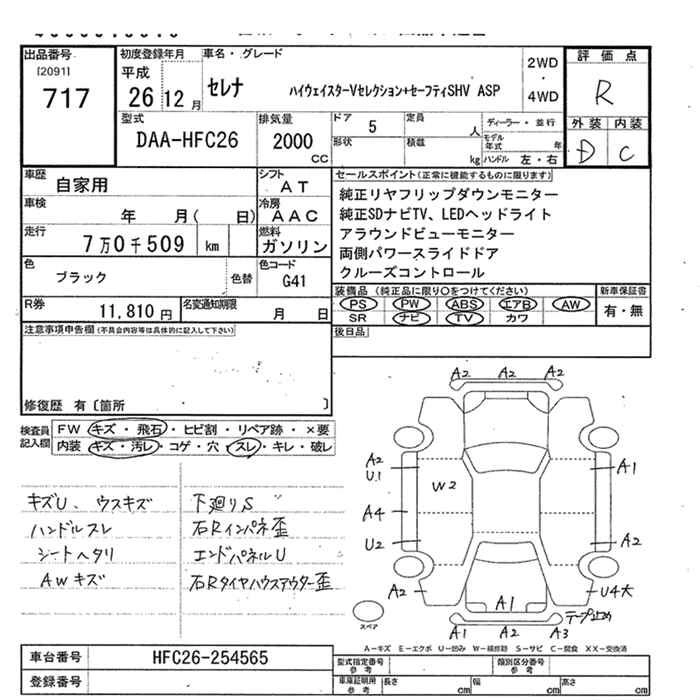 出品番号
[2091]
717
初度登録年月
平成
26 12 月
車名・グレード
セレナ ハイウェイスターVセレクション+セーフティSHV ASP
2WD
・
4WD
評価点
R
外装 内装
D C
型式
DAA-HFC26
排気量
2000
cc
ドア 5
定員 人
形状
積載 kg
ディーラー・並行
モデル年式 年
ハンドル 左・右
車歴
自家用
シフト
AT
車検
年 月( 日)
冷房
AAC
走行
7万0千509 km
燃料
ガソリン
色
ブラック
色替
色コード
G41
R券
11,810 円
名変通知期限
月 日
セールスポイント(正常に機能するものに限ります)
純正リヤフリップダウンモニター
純正SDナビTV、LEDヘッドライト
アラウンドビューモニター
両側パワースライドドア
クルーズコントロール
装備品 (純正品に限り○をつけてください)
PS PW ABS エアB AW
SR ナビ TV カワ
新車保証書
有・無
後日品
注意事項申告欄(不具合内容等は具体的に記入して下さい)
修復歴 有〔箇所 〕
検査員記入欄
FW キズ・飛石・ヒビ割・リペア跡・×要
内装 キズ・汚レ・コゲ・穴・スレ・キレ・破レ
キズU、ウスキズ
ハンドルスレ
シートヘタリ
AWキズ
下廻りS
右Rインパネ歪
エンドパネルU
右Rタイヤハウスアウター歪
A2 A2 A2
A2
U1
W2
A1
A4
U2
A2
A2
A1
U4大
テープ止め
A1 A2 A3
スペア
A-キズ E-エクボ U-凹み W-補修跡 S-サビ C-腐食 XX-交換済
車台番号
HFC26-254565
登録番号
型式指定番号
参考
類別区分番号
参考
車庫証明用
参考
長さ cm
幅 cm
高さ cm